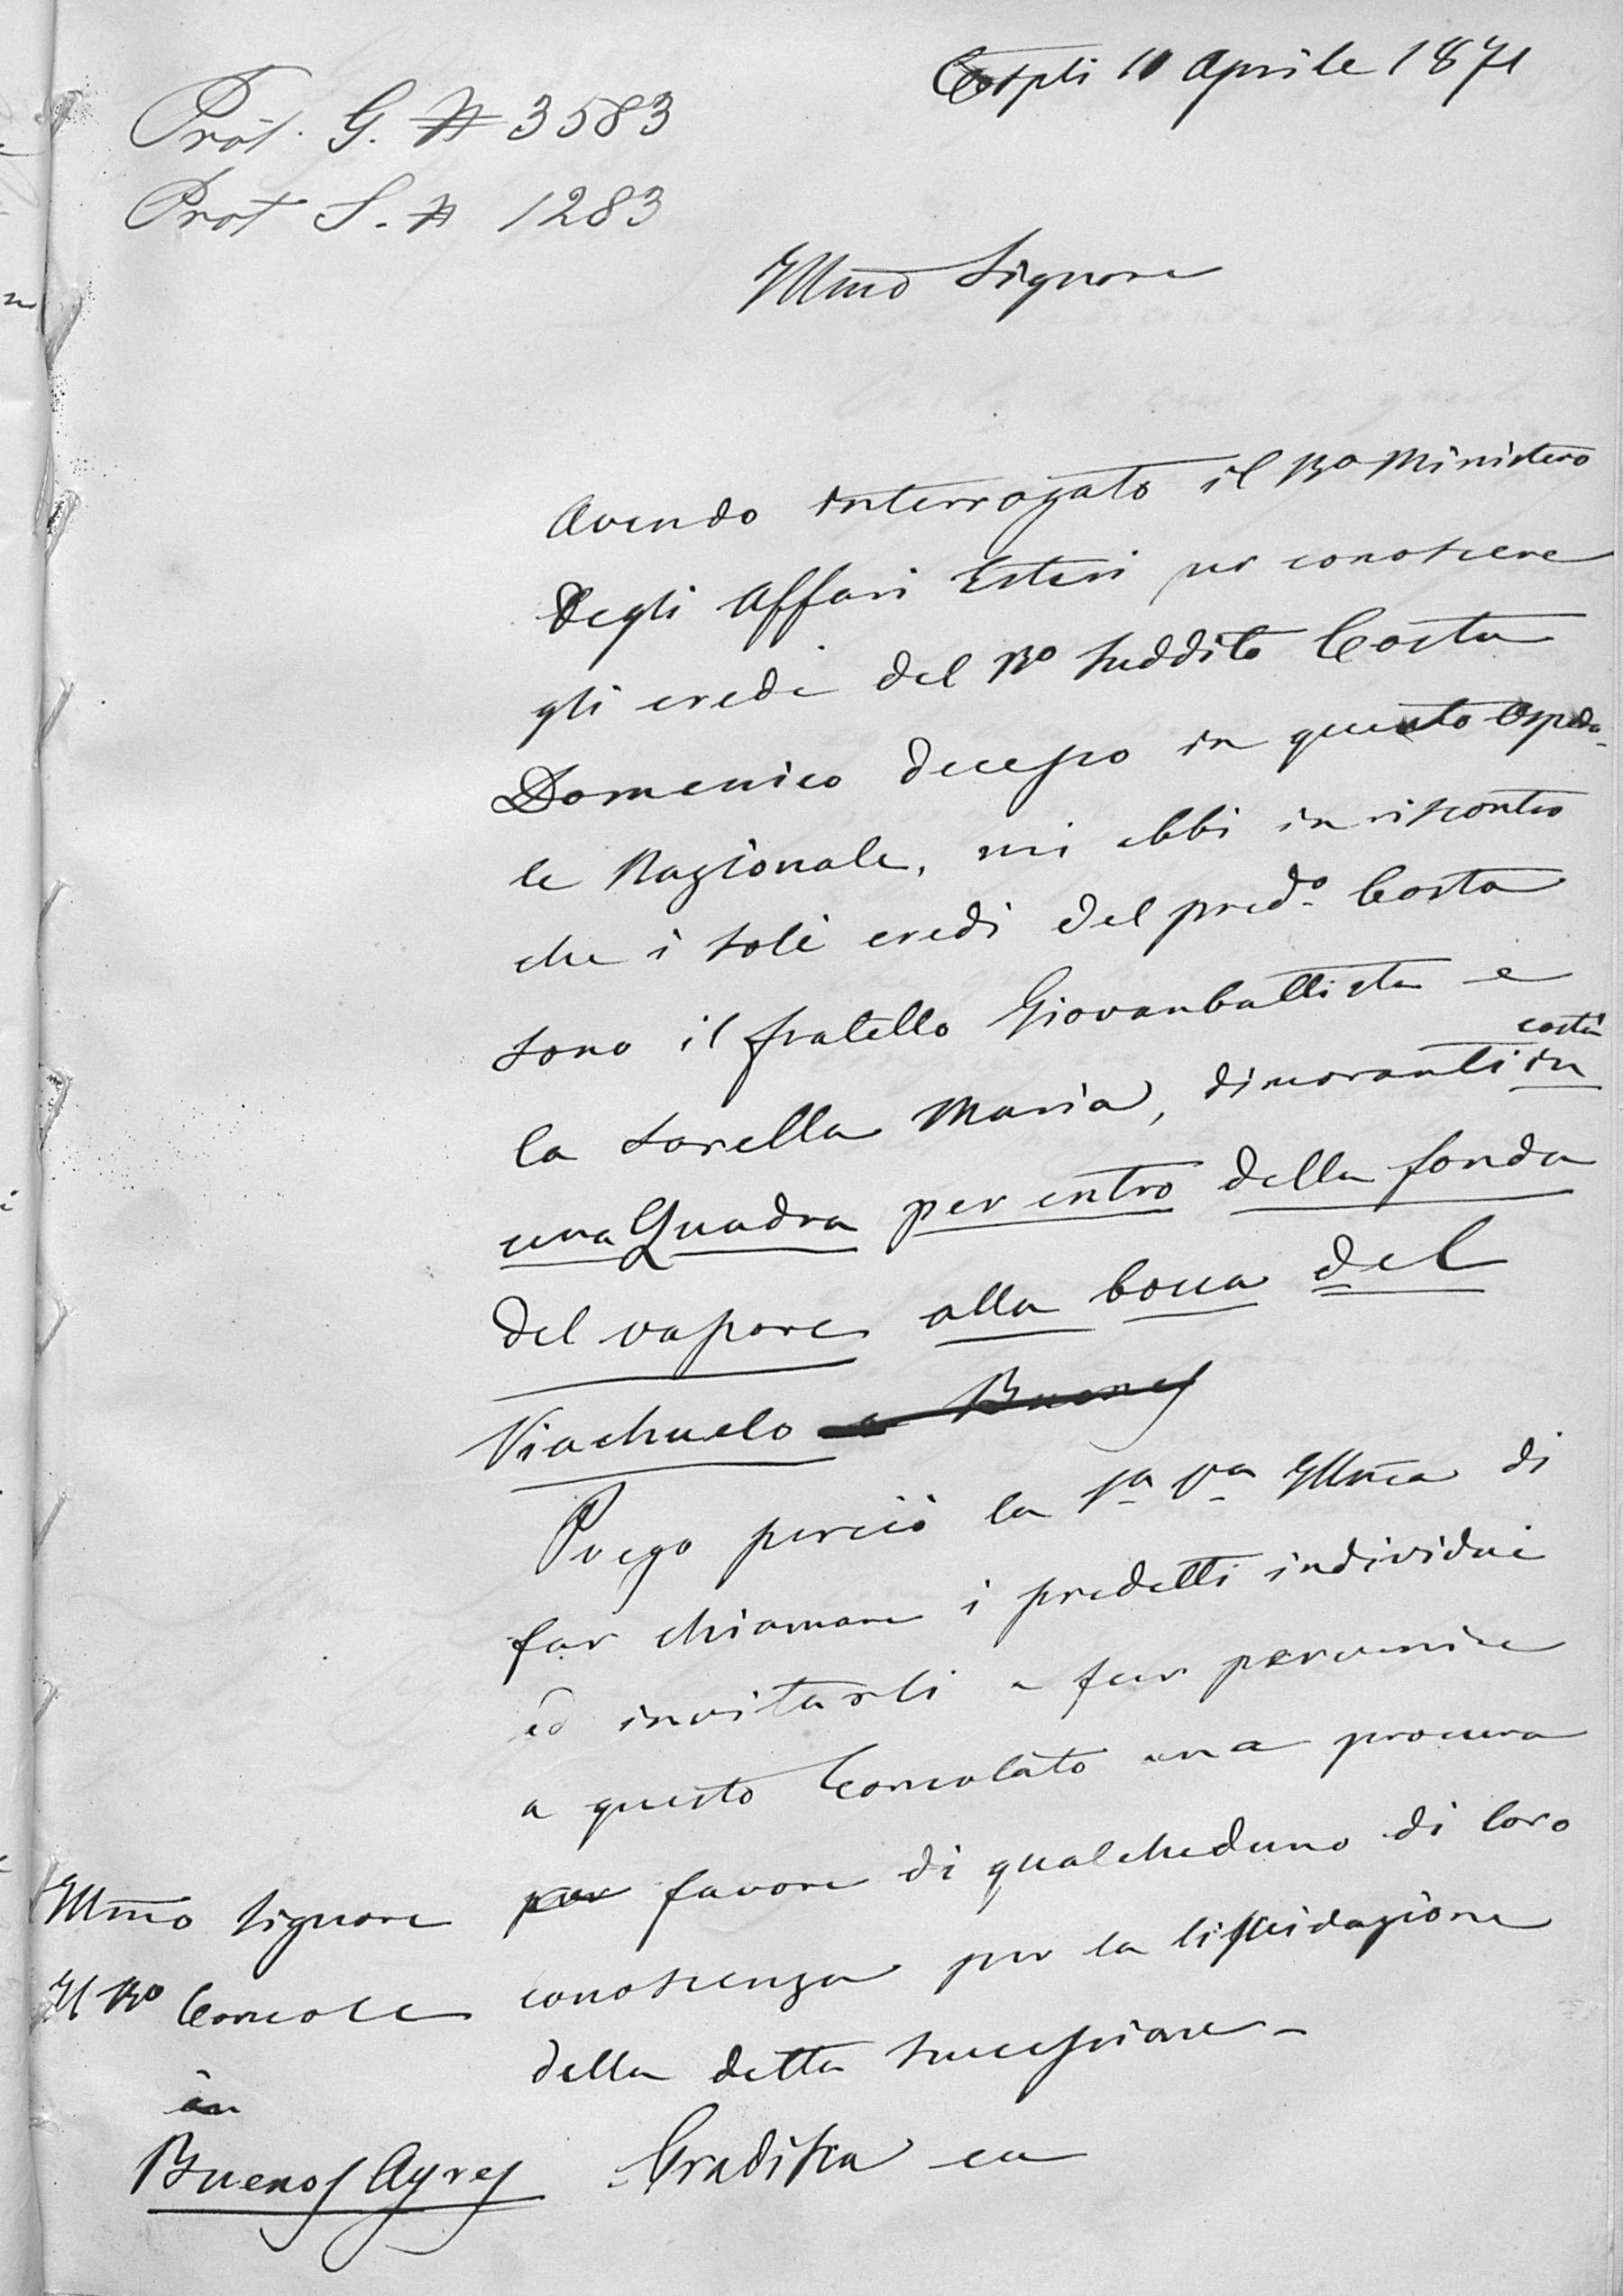 Cospli 10 Aprile 1871
Prot. G. N 3583
Prot S. N 1283
Illmo Signore
Avendo interrogato il Ro Ministero
Degli Affari Esteri per conoscere
gli eredi del Ro suddito Costa
Domenico decesso in questo Ospeda-
le Nazionale, mi ebbi in riscontro
che i soli eredi del pred.o Costa
sono il fratello Giovanbattista e
la sorella Maria, dimoranti costì in
una Quadra per entro della fonda
del vapore alla bocca del
Viachuelo a Buenos
Prego perciò la Sa Va Illma di
far chiamare i predetti individui
ed invitarli a far pervenire
a questo Consolato una procura
per favore di qualcheduno di loro
conoscenza per la liquidazione
della detta successione -
Gradisca
Illmo Signore
Il Ro Console
in
Buenos Ayres